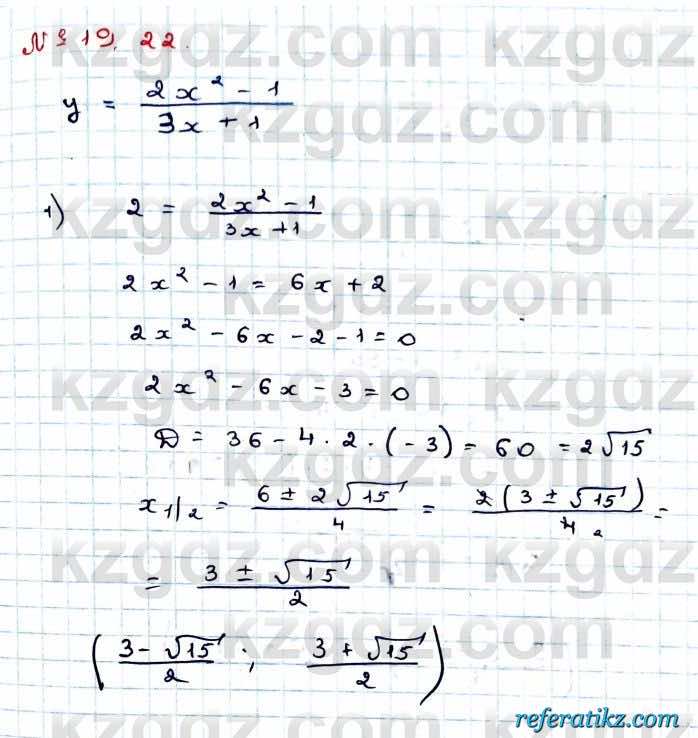 № 19. 22.
y = (2x² - 1)/(3x + 1)
1) 2 = (2x² - 1)/(3x + 1)
2x² - 1 = 6x + 2
2x² - 6x - 2 - 1 = 0
2x² - 6x - 3 = 0
D = 36 - 4 · 2 · (-3) = 60 = 2√15
x 1/2 = (6 ± 2√15)/4 = 2(3 ± √15)/4 2 =
= (3 ± √15)/2
((3 - √15)/2 ; (3 + √15)/2)
kzgdz.com
referatikz.com